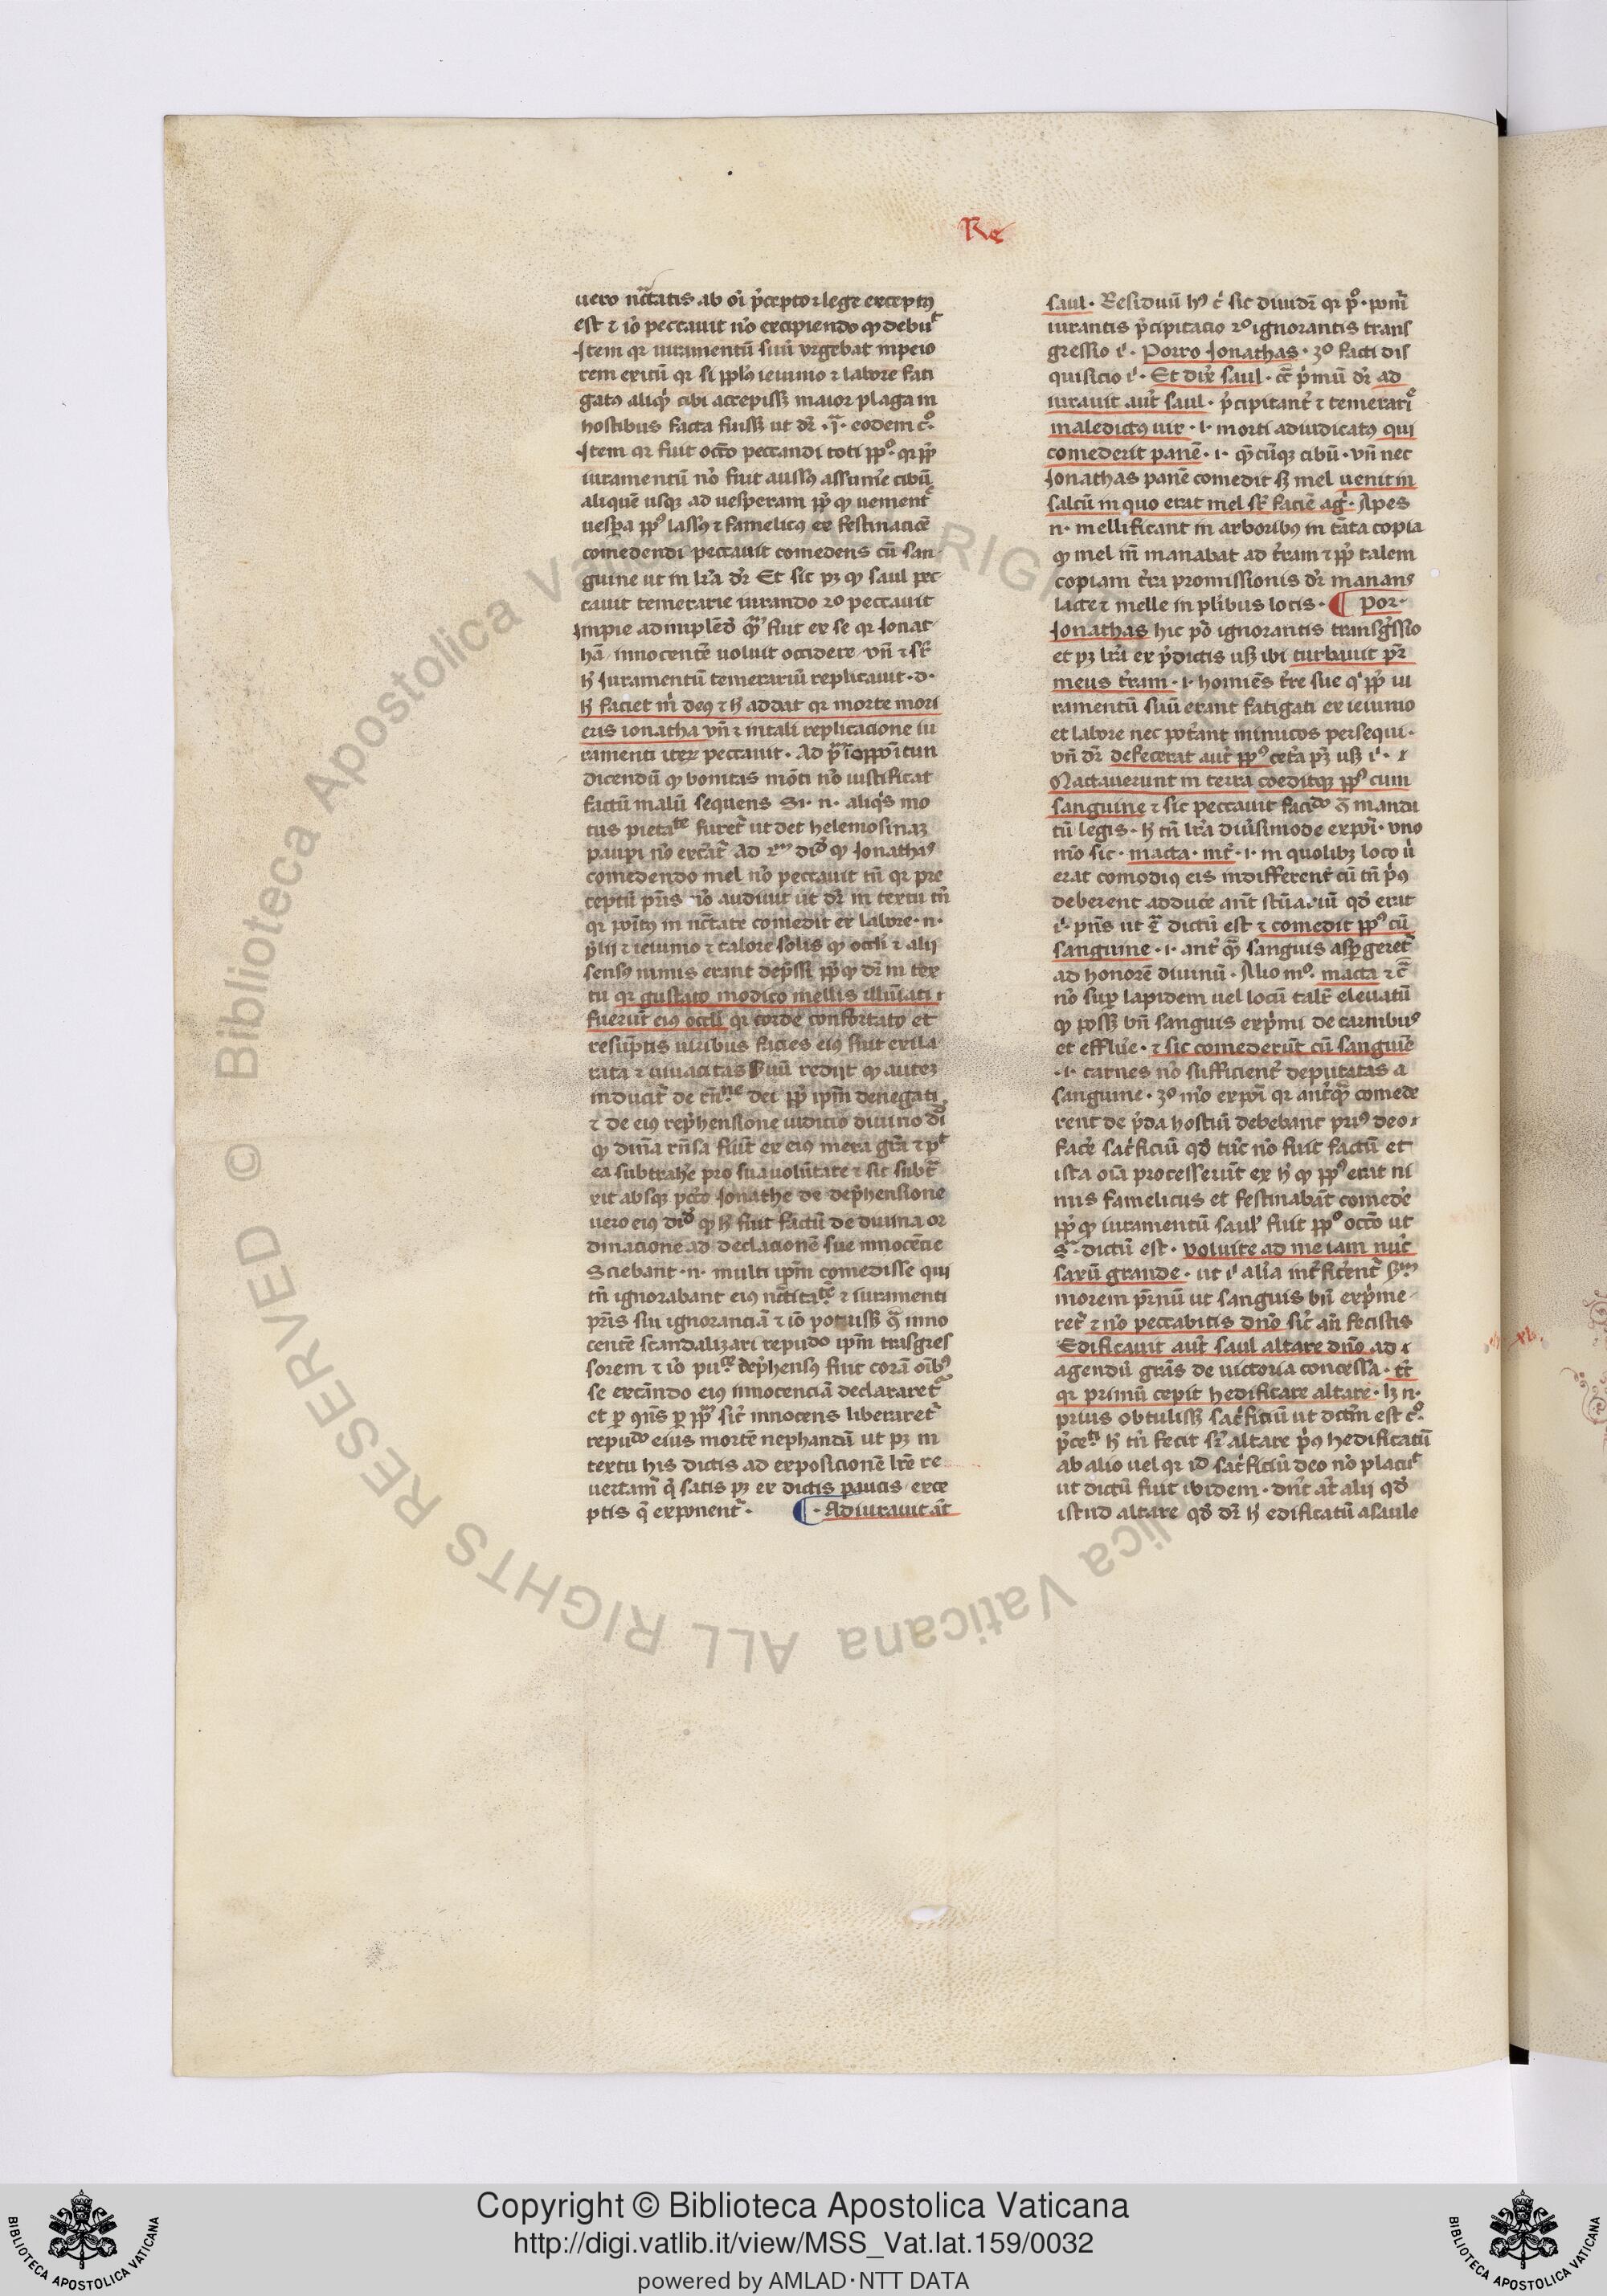 Re
uero nc̄itatis ab oī p̄cepto ⁊ lege exceptꝰ
est ⁊ iō peccauit nō excipiendo ꝙ debuᵗ
Item qr iuramentū suū vrgebat in peio
rem exitū qr si ppl̄s ieiunio ⁊ labore fati
gatꝰ aliqͥ cibi accepissꝫ maior plaga in
hostibus facta fuissꝫ ut dr̄ · j · eodem cº
Item qr fuit occō peccandi toti ppº · qr ꝓp̄
iuramentū nō fuit aussꝰ assumē cibū
aliquē usqꝫ ad uesperam ꝓp̄ ꝙ uenientᵉ
uesꝑa ppꝰ lassꝰ ⁊ famelicꝰ ex festinaciōe
comedendi peccauit comedens cū san
guine ut in lr̄a dr̄ Et sic pꝫ ꝙ saul pec
cauit temerarie iurando 2º peccauit
Impie adimplēdº fuit ex se qr Jonat
hā innocentē uoluit occidere vn̄ ⁊ sr̄
h̄ Iuramentū temerariū replicauit · d ·
h̄ faciet m̄ deꝰ ⁊ h̄ addat qr morte mori
eris ionatha vn̄ ⁊ in tali replicacione iu
ramenti iterꝫ peccauit · Ad p̄ᵐ ī oppoītun
dicendū ꝙ bonitas mōti nō iustificat
factū malū sequens Si · n · aliqͥs mo
tus pietaᵗᵉ furet᷑ ut det helemosinaꝫ
pauꝑi nō excāt᷑ Ad 2ᵐ dīº ꝙ Jonathaˢ
comedendo mel nō peccauit tū qr pre
ceptū pr̄is nō audiuit ut dr̄ in textu tū
qr poītꝰ in nc̄itate comedit ex labore · n ·
p̄lij ⁊ ieiunio ⁊ calore solis ꝙ occli ⁊ alij
sensꝰ nimis erant dep̄ssi ꝓp̄ ꝙ dr̄ in tex
tu qr gustato modico mellis illūīati
fuerūt eiꝰ occli qr corde confortato et
resūptis uiribus facies eiꝰ fuit exila
rata ⁊ uiuacitas uū redijt ꝙ auteꝫ
inducit᷑ de rn̄ⁿᵉ dei ꝓp̄ ipm̄ denegati
⁊ de eiꝰ rep̄hensione iudicio diuino dīº
ꝙ diuīa rn̄sa fiūt ex eiꝰ mera grā ⁊ pᵗ
ea subtrahe᷑ pro sua volūtate ⁊ sic subt᷑
xit absqꝫ pctō Jonathe de dep̄hensione
uero eiꝰ dīº ꝙ h̄ fuit factū de diuina or
dinacione ad declacionē sue innocēcie
Sciebant · n · multi ipm̄ comedisse qui
tn̄ ignorabant eiꝰ nc̄itaᵗᵉ ⁊ iuramenti
pr̄is sui ignoranciā ⁊ iō potuissꝫ qͣ inno
cente scandalizari ipm̄ trāsgres
sorem ⁊ iō dep̄hensꝰ fuit corā oībꝰ
se excūando eiꝰ innocenciā declararet᷑
et ꝑ qn̄s ꝑ ppm̄ sic innocens liberaret᷑
eius mortē nephandā ut pꝫ in
textu his dictis ad exposicionē lr̄e re
uertam᷑ q̄ satis pꝫ ex dictis paucis exce
ptis q̄ exponent᷑ · ¶ · Adiurauit āt
saul · Residuū hꝰ cͥ sic diuidr̄ qr pº · ponit᷑
iurantis p̄cipitacio 2º ignorantis trans
gressio ī · Porro Jonathas · 3º facti dis
quisicio ī · Et dix̄ saul · cc̄ p̄mū dr̄ ad
iurauit aut̄ saul · p̄cipitant᷑ ⁊ temerariᵉ
maledictꝰ uir · ı · morti adiudicatꝰ qui
comederit panē · ı · qͣcūqꝫ cibū · vn̄ nec
Jonathas panē comedit sꝫ mel uenit in
saltū in quo erat mel sr̄ faciē agͥ · Apes
n · mellificant in arboribꝰ in tāta copia
ꝙ mel in̄ manabat ad t̄ram ⁊ ꝓp̄ talem
copiam t̄ra promissionis dr̄ manans
lacte ⁊ melle in pl̄ibus locis · ¶ Por
Jonathas hic pōͥ ignorantis transgͣssio
et pꝫ lr̄a ex p̄dictis usꝫ ibi turbauit pr̄
meus t̄ram · ı · homīes t̄re sue qͥ ꝓp̄ iu
ramentū suū erant fatigati ex ieiunio
et labore nec pot̄ant inimicos persequi ·
vn̄ dr̄ defecerat aut̄ ppꝰ cet̄a pꝫ usꝫ ī ·
Mactauerunt in terra coeditqꝫ ppꝰ cum
sanguine ⁊ sic peccauit facīdº 9̄ manda
tū legis · h̄ tn̄ lr̄a diūsimode expoīt᷑ · vno
mō sic · macta · int̄ · ı · in quolibꝫ loco ū
erat comodiꝰ eis indifferent᷑ cū tn̄ p̄ꝰ
deberent adduce᷑ an̄t qd̄ erit
ut dictū est ⁊ comedit ppꝰ cū
sanguine · ı · ant᷑ qͣ sanguis aspergeret᷑
ad honorē diuinū · Alio mº · macta ⁊ c̄
nō suꝑ lapidem uel locū talit᷑ eleuatū
ꝙ possꝫ bn̄ sanguis exp̄mi de carnibuˢ
et efflue᷑ · ⁊ sic comederūt cū sanguīe
· ı · carnes nō sufficient᷑ depuratas a
sanguine · 3º mō expoīt᷑ qr ant᷑qͣ comede
rent de p̄da hostiū debebant priꝰ deo
face᷑ sac᷑ficiū qd̄ tūc nō fuit factū et
ista oīa processerūt ex h̄ ꝙ ppꝰ erat ni
mis famelicus et festinabāt comede᷑
ꝓp̄ ꝙ iuramentū saulˢ fuit ppº occō ut
sͣ · dictū est · voluite ad me iam nūc
saxū grande · ut ī alīa int᷑ficient᷑ sᵐ
morem pr̄nū ut sanguis bn̄ exp̄me
ret᷑ ⁊ nō peccabitis dnō sic᷑ an̄ fecistis
Edificauit aut̄ saul altare dnō ad
agendū grās de uictoria concessa · tc̄
qr primū cepit hedificare altare · lꝫ n ·
prius obtulissꝫ sac᷑ficiū ut dictm̄ est cº
p̄ceⁿᵗⁱ h̄ tn̄ fecit sr̄ altare p̄ꝰ hedificatū
ab alio uel qr id sac᷑ficiū deo nō placuᵗ
ut dictū fuit ibidem · dn̄t āt alij qd̄
istud altare qd̄ dr̄ h̄ edificatū a saule
© Biblioteca Apostolica Vaticana ALL RIGHTS RESERVED
Copyright © Biblioteca Apostolica Vaticana
http://digi.vatlib.it/view/MSS_Vat.lat.159/0032
powered by AMLAD·NTT DATA
BIBLIOTECA APOSTOLICA VATICANA
BIBLIOTECA APOSTOLICA VATICANA